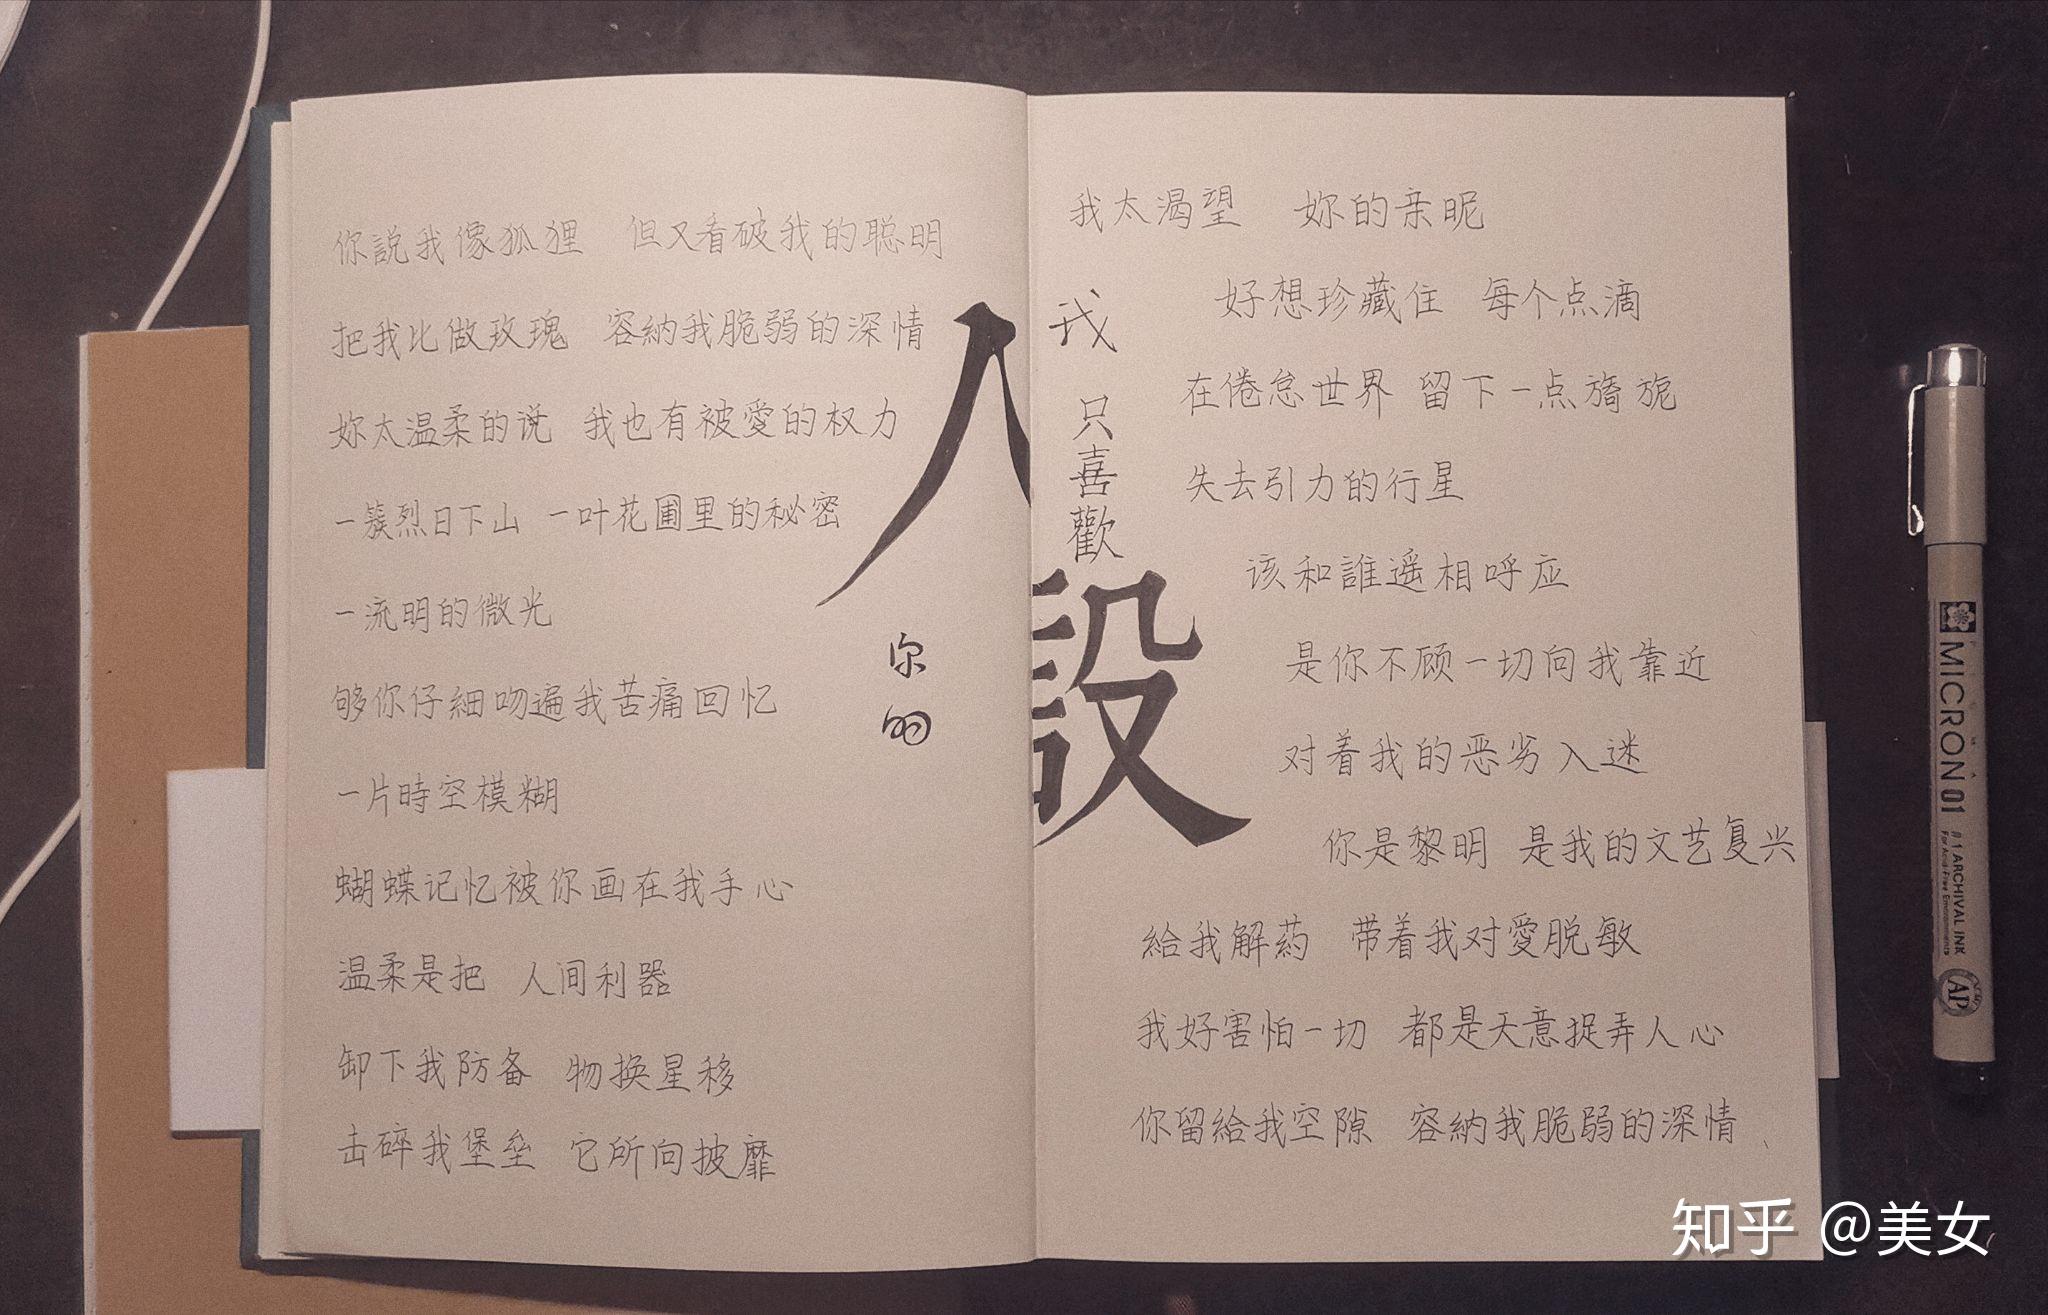 你說我像狐狸 但又看破我的聪明
把我比做玫瑰 容納我脆弱的深情
妳太温柔的说 我也有被愛的权力
一簇烈日下山 一叶花圃里的秘密
一流明的微光
够你仔細吻遍我苦痛回忆
一片時空模糊
蝴蝶记忆被你画在我手心
温柔是把 人间利器
卸下我防备 物换星移
击碎我堡垒 它所向披靡
我只喜歡
你的
人設
我太渴望 妳的亲昵
好想珍藏住 每个点滴
在倦怠世界 留下一点旖旎
失去引力的行星
该和誰遥相呼应
是你不顾一切向我靠近
对着我的恶劣入迷
你是黎明 是我的文艺复兴
給我解药 带着我对愛脱敏
我好害怕一切 都是天意捉弄人心
你留給我空隙 容納我脆弱的深情
MICRON 01
#1 ARCHIVAL INK
For Acid-Free Environments
AP
知乎 @美女